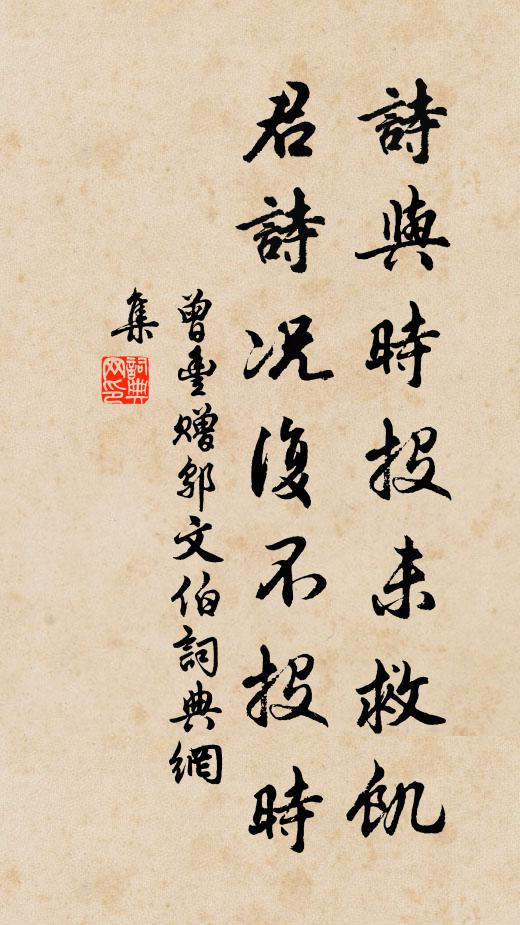 詩與時投未救飢
君詩况復不投時
曾豐贈鄔文伯詞典網
集
詞典
网印